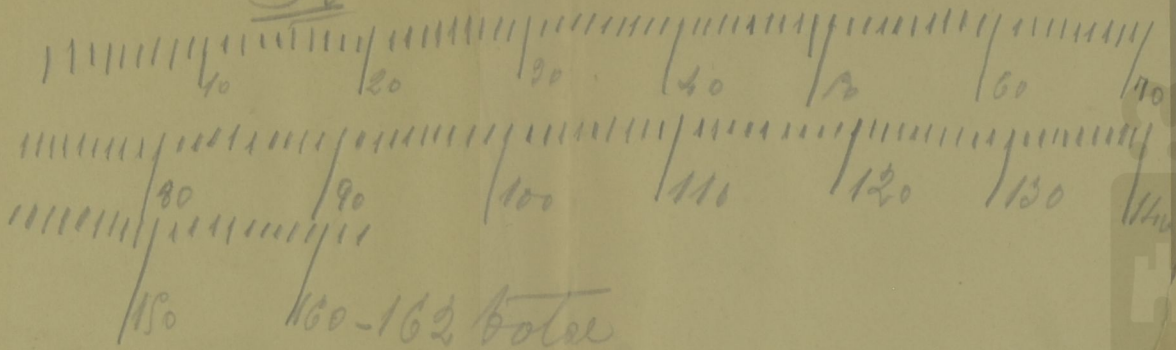 10 20 30 40 50 60 70
80 90 100 110 120 130 140
150 160-162 total